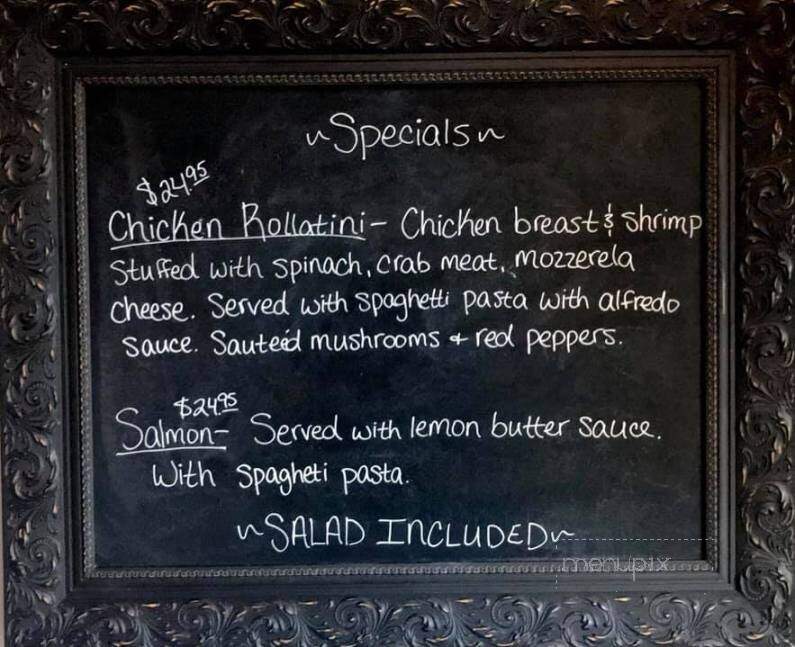 ~Specials~
$24.95
Chicken Rollatini - Chicken breast & shrimp
Stuffed with spinach, crab meat, mozzerela
cheese. Served with spaghetti pasta with alfredo
sauce. Sauteéd mushrooms + red peppers.
$24.95
Salmon - Served with lemon butter sauce.
With spagheti pasta.
~SALAD INCLUDED~
menupix